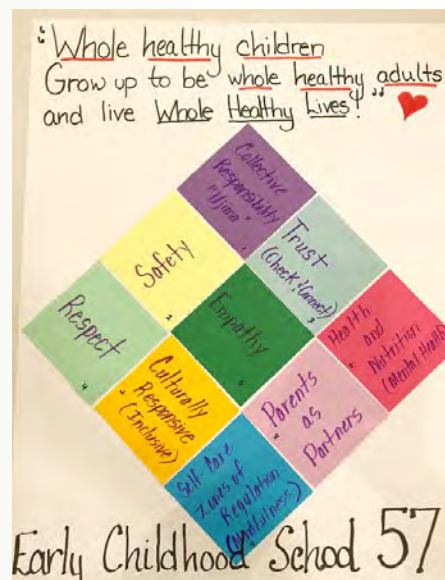 "Whole healthy children
Grow up to be whole healthy adults
and live Whole Healthy Lives!"
Collective
Responsibility
"Ujima"
1
Safety
2
Trust
(Check & Correct)
3
Respect
4
Empathy
5
Health
and
Nutrition
(Mental Health)
Culturally
Responsive
(Inclusive)
Parents
as
Partners
Self-Care
Zones of
Regulation
(Mindfulness)
Early Childhood School 57